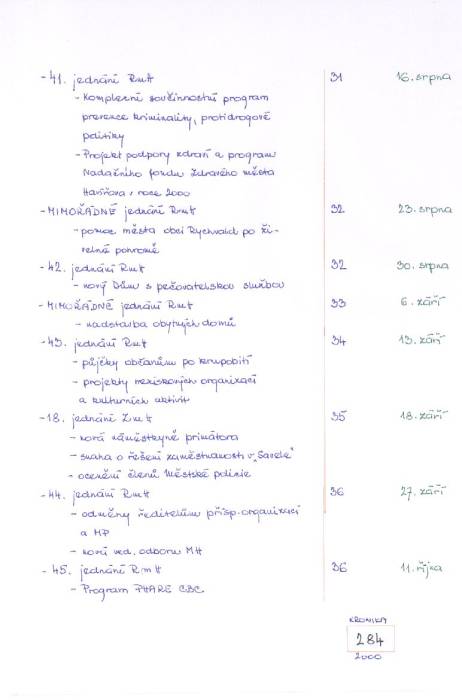 - 41. jednání RmH 31 16. srpna
- Komplexní součinnostní program
prevence kriminality, protidrogové
politiky
- Projekt podpory zdraví a program
Nadačního fondu Zdravého města
Havířova v roce 2000
- MIMOŘÁDNÉ jednání RmH 32 23. srpna
- pomoc města obci Rychvald po ži-
velné pohromě
- 42. jednání RmH 32 30. srpna
- nový Dům s pečovatelskou službou
- MIMOŘÁDNÉ jednání RmH 33 6. září
- nadstavba obytných domů
- 43. jednání RmH 34 13. září
- půjčky občanům po krupobití
- projekty neziskových organizací
a kulturních aktivit
- 18. jednání ZmH 35 18. září
- nová náměstkyně primátora
- snaha o řešení zaměstnanosti v
- ocenění členů Městské policie
- 44. jednání RmH 36 27. září
- odměny ředitelům přísp. organizací
a MP
- nový ved. odboru MH
- 45. jednání RmH 36 11. října
- Program PHARE CBC
KRONIKA
284
2000